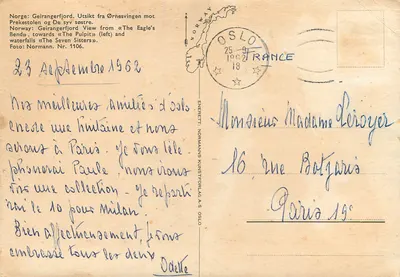 Norge: Geirangerfjord, Utsikt fra Ørnesvingen mot
Prekestolen og De syv søstre.
Norway: Geirangerfjord View from «The Eagle's
Bend», towards «The Pulpit» (left) and
waterfalls «The Seven Sisters».
Foto: Normann. Nr. 1106.
23 septembre 1962
Nos meilleures amitiés d'Oslo
encore une huitaine et nous
serons à Paris. Je vous télé
phonerai Paule, nous irons
voir une collection. Je reparti
rai le 10 pour Milan.
Bien affectueusement, je vous
embrasse tous les deux
Odette
ENERETT: NORMANNS KUNSTFORLAG A/S OSLO
OSLO
25-9
1962
18
FRANCE
Monsieur Madame Leroyer
16, rue Botzaris
Paris 19e